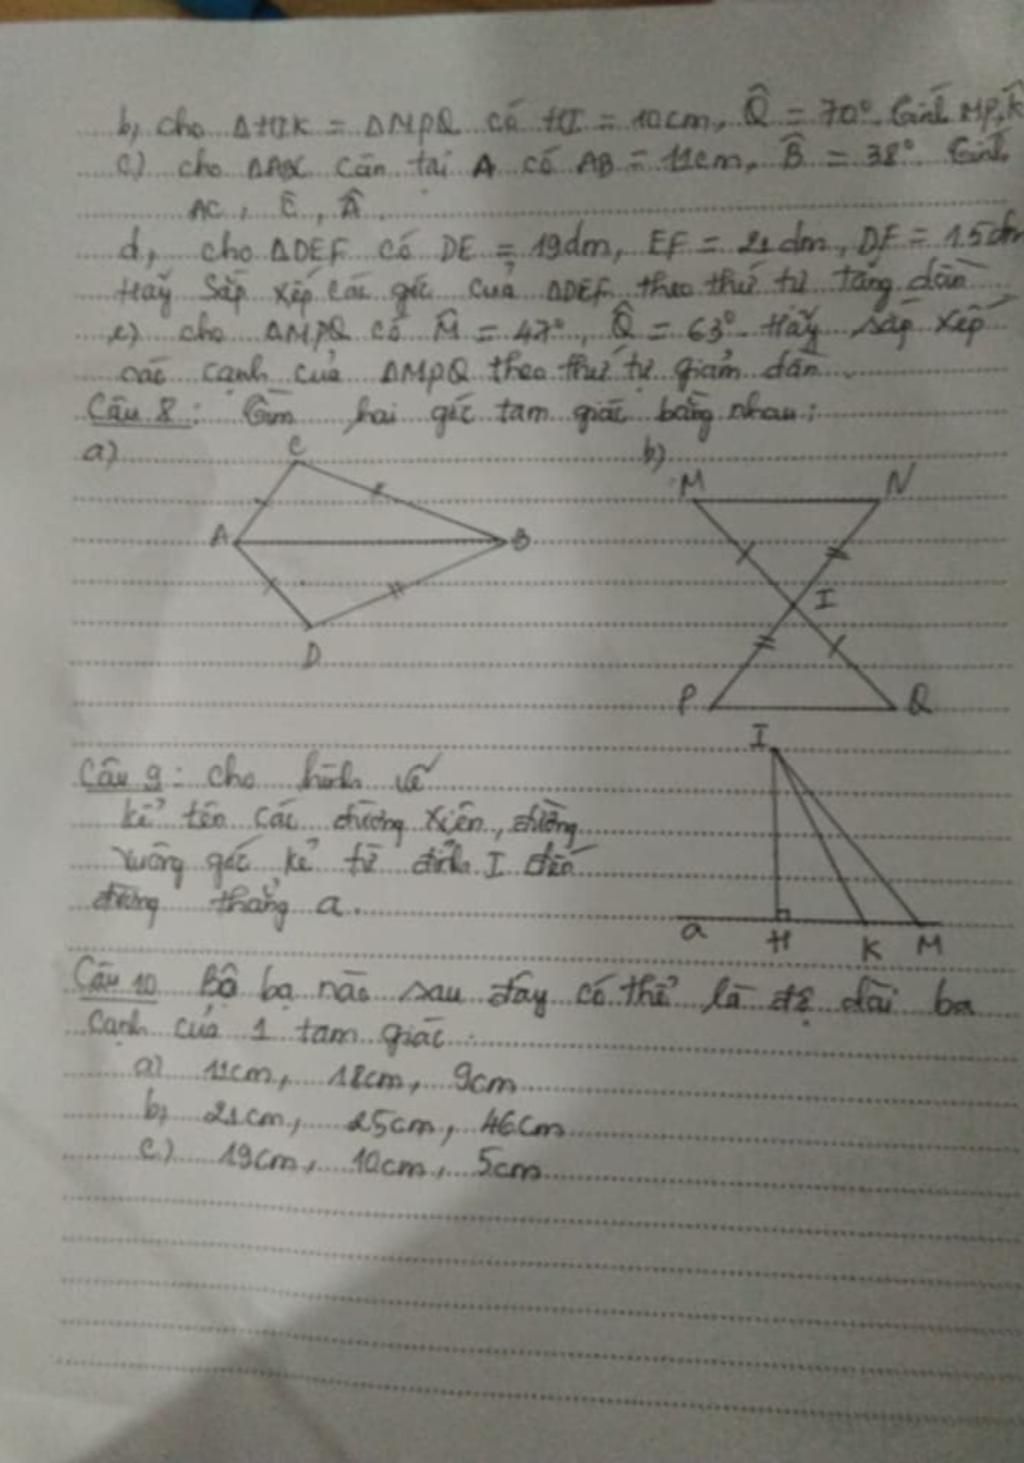 b, cho ΔHIK = ΔMPQ có HI = 10cm, Q̂ = 70°. Tính MP, K̂
c) cho ΔABC cân tại A có AB = 11cm, B̂ = 38°. Tính
AC, Ĉ, Â.
d, cho ΔDEF có DE = 19dm, EF = 21dm, DF = 15dm
Hãy sắp xếp các góc của ΔDEF theo thứ tự tăng dần
e) cho ΔMPQ có M̂ = 47°, Q̂ = 63°. Hãy sắp xếp
các cạnh của ΔMPQ theo thứ tự giảm dần.
Câu 8: Tìm hai góc tam giác bằng nhau:
a) b)
C M N
A B
I
D
P Q
I
Câu 9: cho hình vẽ
kể tên các đường xiên, đường
vuông góc kẻ từ đỉnh I đến
đường thẳng a.
a H K M
Câu 10 Bộ ba nào sau đây có thể là độ dài ba
cạnh của 1 tam giác.
a) 11cm, 18cm, 9cm
b, 21cm, 25cm, 46cm
c) 19cm, 10cm, 5cm